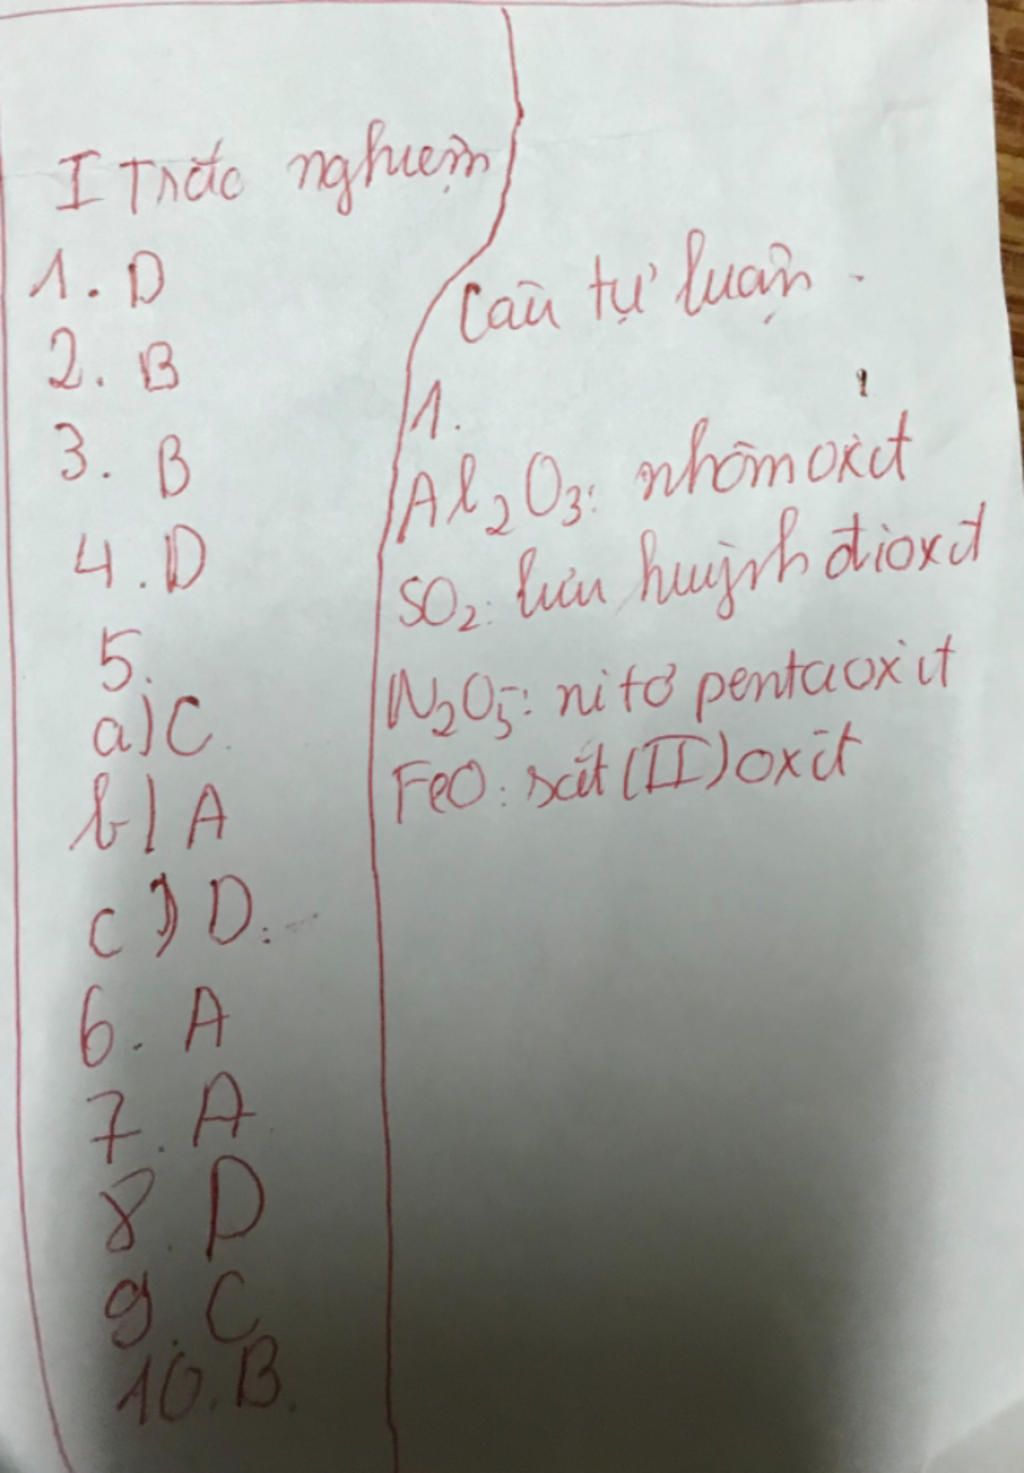 I Trắc nghiệm
1. D
2. B
3. B
4. D
5.
a) C.
b) A
c) D.
6. A
7. A
8. D
9. C
10. B.
Câu tự luận
1.
Al2O3: nhôm oxit
SO2: lưu huỳnh đioxit
N2O5: nitơ pentaoxit
FeO: sắt (II) oxit